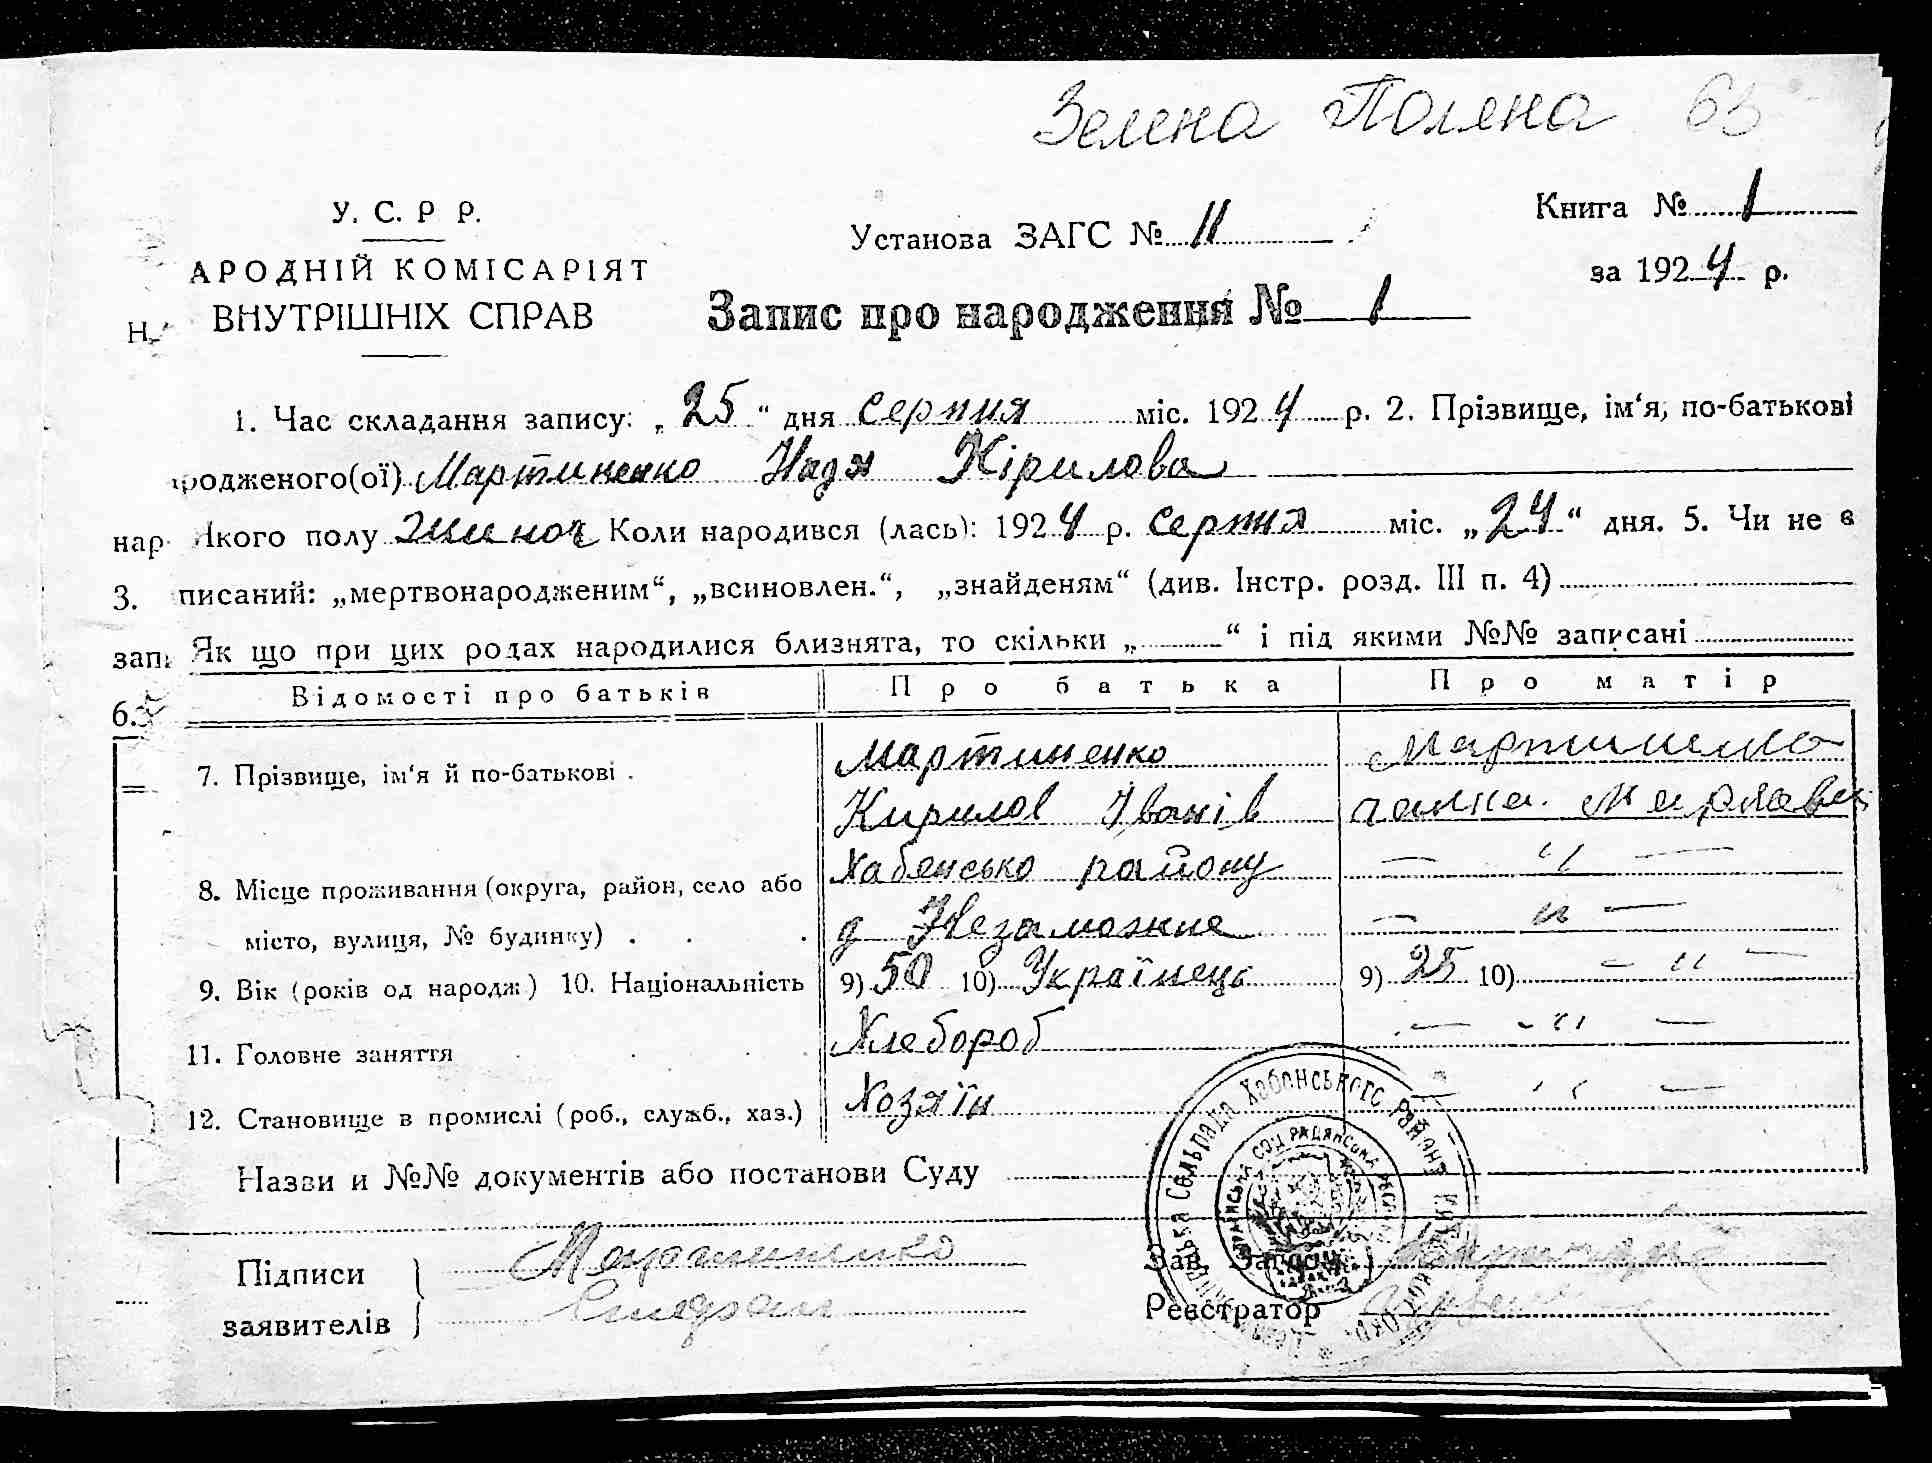 Зелена Поляна 63
У. С. Р Р.
АРОДНІЙ КОМІСАРІЯТ
Н
ВНУТРІШНІХ СПРАВ
Установа ЗАГС № 11
Книга № 1
за 1924 р.
Запис про народження № 1
1. Час складання запису: „25“ дня серпня міс. 1924 р. 2. Прізвище, ім‘я, по-батькові
родженого(ої) Мартиненко Надя Кірилова
нар Якого полу жиноч Коли народився (лась): 1924 р. Серпня міс. „24“ дня. 5. Чи не в
3. писаний: „мертвонародженим“, „всиновлен.“, „знайденям“ (див. Інстр. розд. III п. 4)
запи Як що при цих родах народилися близнята, то скільки „ “ і під якими №№ записані
6. Відомості про батьків Про батька Про матір
7. Прізвище, ім‘я й по-батькові . Мартиненко Мартиненко
Кирилов Іванів
8. Місце проживання (округа, район, село або Хабенсько району — „ —
місто, вулиця, № будинку) . . . д Незаможне — „ —
9. Вік (років од народж) 10. Національність 9) 50 10) Українець 9) 25 10) — „ —
11. Головне заняття Хлебороб — „ —
12. Становище в промислі (роб., служб., хаз.) Хозяїн — „ —
Назви и №№ документів або постанови Суду
Підписи Мартиненко
заявителів
Зав. Загсом
Реєстратор
Сельрада Хабенського Району
УКРАЇНСЬКА СОЦ РАДЯНСЬКА